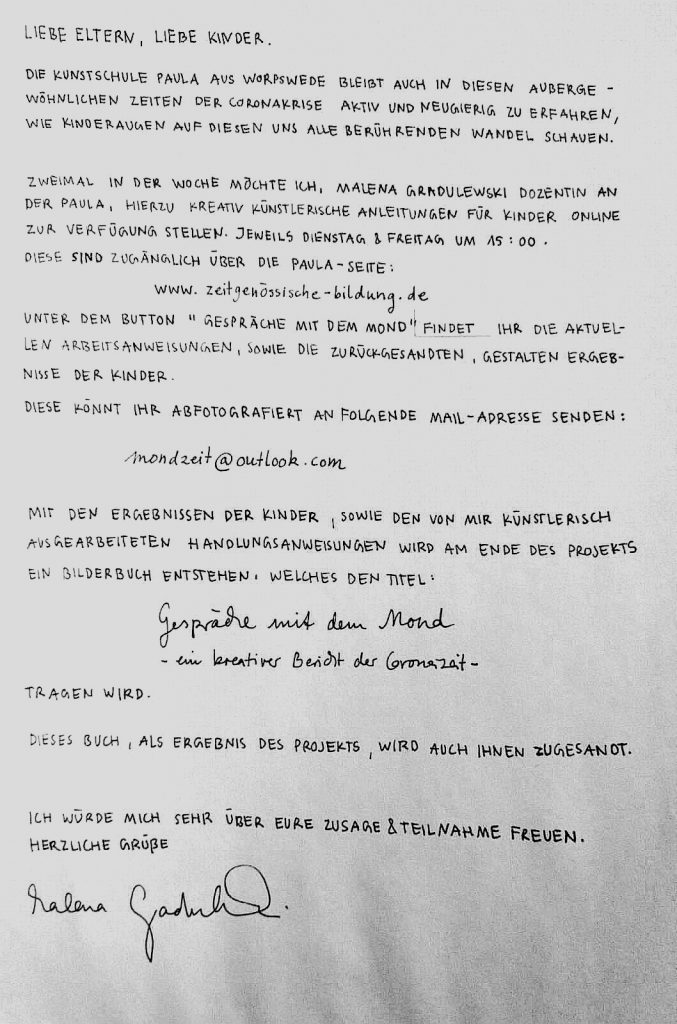 LIEBE ELTERN, LIEBE KINDER.
DIE KUNSTSCHULE PAULA AUS WORPSWEDE BLEIBT AUCH IN DIESEN AUßERGE-
WÖHNLICHEN ZEITEN DER CORONAKRISE AKTIV UND NEUGIERIG ZU ERFAHREN,
WIE KINDERAUGEN AUF DIESEN UNS ALLE BERÜHRENDEN WANDEL SCHAUEN.
ZWEIMAL IN DER WOCHE MÖCHTE ICH, MALENA GRADULEWSKI DOZENTIN AN
DER PAULA, HIERZU KREATIV KÜNSTLERISCHE ANLEITUNGEN FÜR KINDER ONLINE
ZUR VERFÜGUNG STELLEN. JEWEILS DIENSTAG & FREITAG UM 15:00.
DIESE SIND ZUGÄNGLICH ÜBER DIE PAULA-SEITE:
www.zeitgenössische-bildung.de
UNTER DEM BUTTON "GESPRÄCHE MIT DEM MOND" FINDET IHR DIE AKTUEL-
LEN ARBEITSANWEISUNGEN, SOWIE DIE ZURÜCKGESANDTEN, GESTALTEN ERGEB-
NISSE DER KINDER.
DIESE KÖNNT IHR ABFOTOGRAFIERT AN FOLGENDE MAIL-ADRESSE SENDEN:
mondzeit@outlook.com
MIT DEN ERGEBNISSEN DER KINDER, SOWIE DEN VON MIR KÜNSTLERISCH
AUSGEARBEITETEN HANDLUNGSANWEISUNGEN WIRD AM ENDE DES PROJEKTS
EIN BILDERBUCH ENTSTEHEN. WELCHES DEN TITEL:
Gespräche mit dem Mond
- ein kreativer Bericht der Coronazeit -
TRAGEN WIRD.
DIESES BUCH, ALS ERGEBNIS DES PROJEKTS, WIRD AUCH IHNEN ZUGESANDT.
ICH WÜRDE MICH SEHR ÜBER EURE ZUSAGE & TEILNAHME FREUEN.
HERZLICHE GRÜßE
Malena